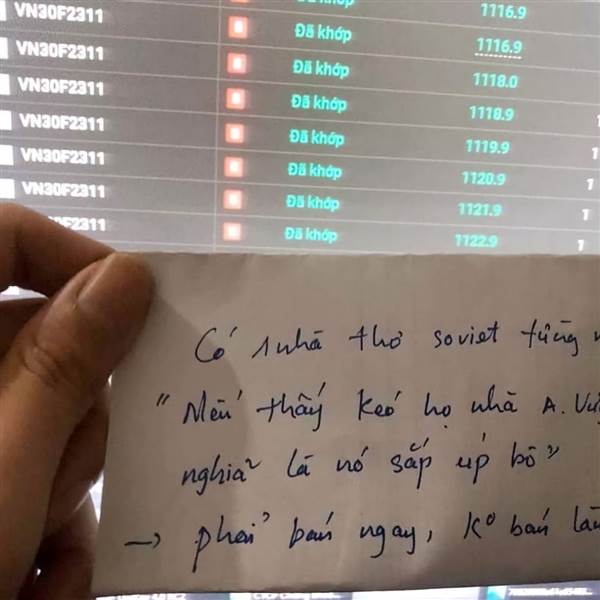 VN30F2311 1116.9
VN30F2311 B Đã khớp 1116.9
VN30F2311 B Đã khớp 1118.0
VN30F2311 B Đã khớp 1118.9 1
VN30F2311 B Đã khớp 1119.9 1
VN30F2311 B Đã khớp 1120.9 1
B Đã khớp 1121.9 1
B Đã khớp 1122.9 1
Có 1 nhà thơ soviet từng
"Nếu thấy kéo họ nhà A. 
nghĩa là nó sắp úp bô"
→ phải bán ngay, ko bán